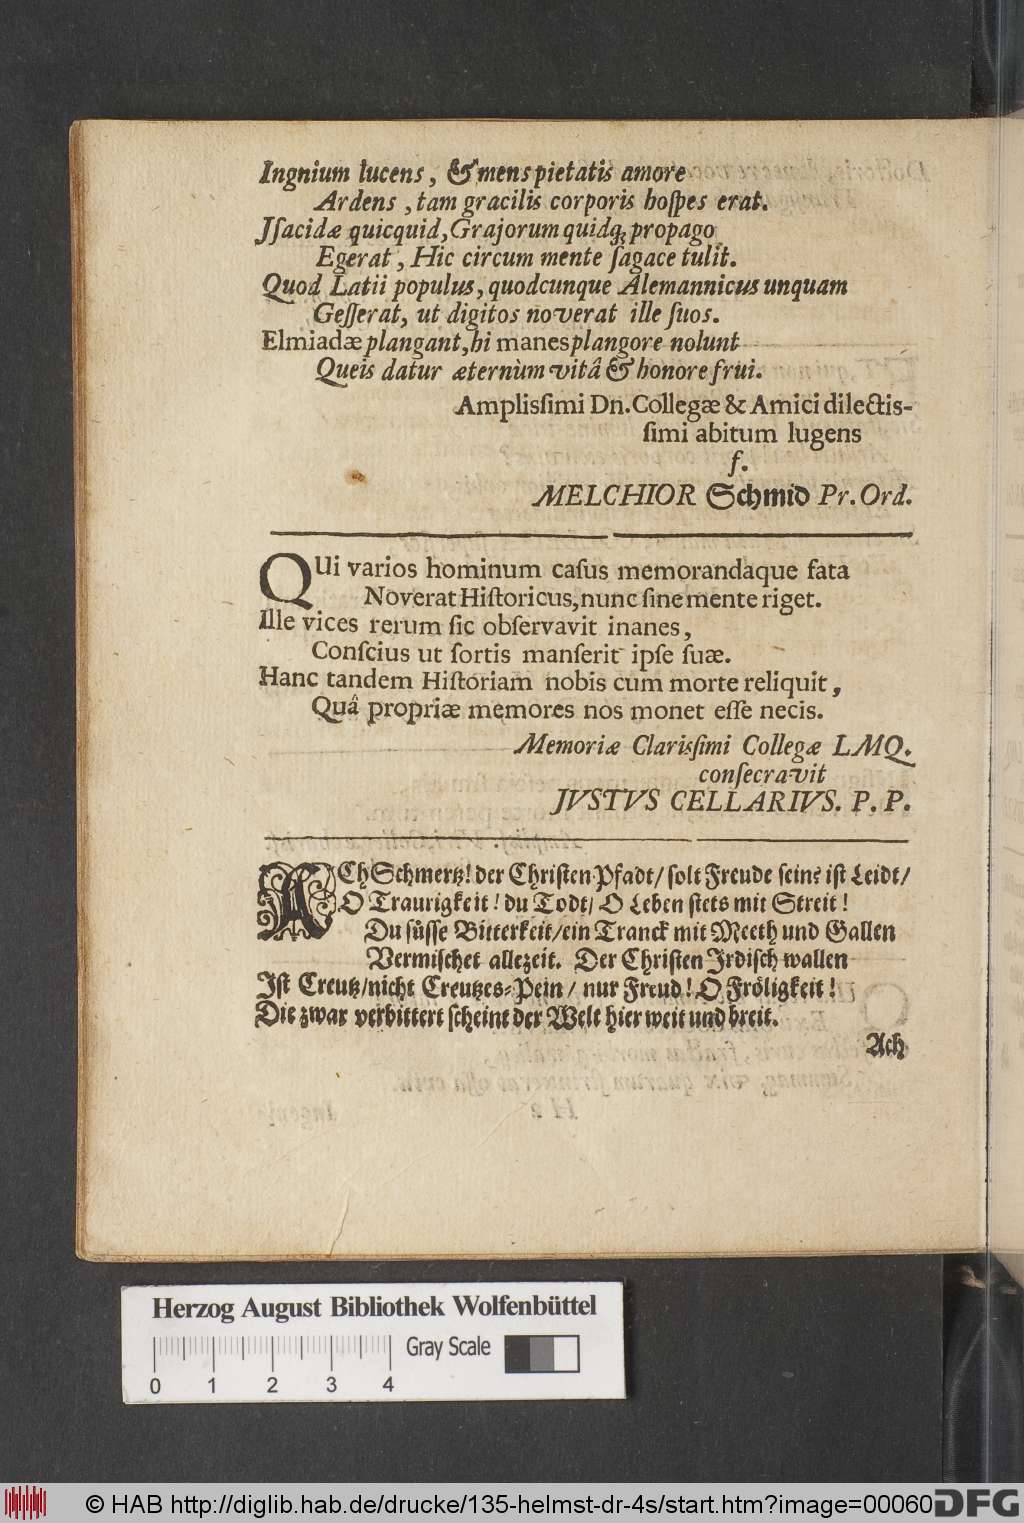 Ingnium lucens, & mens pietatis amore
Ardens, tam gracilis corporis hoſpes erat.
Jſacidæ quicquid, Grajorum quidq; propago
Egerat, Hic circum mente ſagace tulit.
Quod Latii populus, quodcunque Alemannicus unquam
Geſſerat, ut digitos noverat ille ſuos.
Elmiadæ plangant, hi manes plangore nolunt
Queis datur æternùm vitâ & honore frui.
Ampliſsimi Dn. Collegæ & Amici dilectis-
ſimi abitum lugens
f.
MELCHIOR Schmid Pr. Ord.
QUi varios hominum caſus memorandaque fata
Noverat Hiſtoricus, nunc ſine mente riget.
Ille vices rerum ſic obſervavit inanes,
Conſcius ut ſortis manſerit ipſe ſuæ.
Hanc tandem Hiſtoriam nobis cum morte reliquit,
Quâ propriæ memores nos monet eſſe necis.
Memoriæ Clariſſimi Collegæ LMQ.
conſecravit
JVSTVS CELLARIVS. P. P.
ACh Schmertz! der Chriſten Pfadt/ ſolt Freude ſein? iſt Leidt/
O Traurigkeit! du Todt/ O Leben ſtets mit Streit!
Du ſüſſe Bitterkeit/ ein Tranck mit Meeth und Gallen
Vermiſchet allezeit. Der Chriſten Irdiſch wallen
Iſt Creutz/ nicht Creutzes-Pein/ nur Freud! O Fröligkeit!
Die zwar verbittert ſcheint der Welt hier weit und breit.
Ach
Herzog August Bibliothek Wolfenbüttel
Gray Scale
0 1 2 3 4
© HAB http://diglib.hab.de/drucke/135-helmst-dr-4s/start.htm?image=00060
DFG